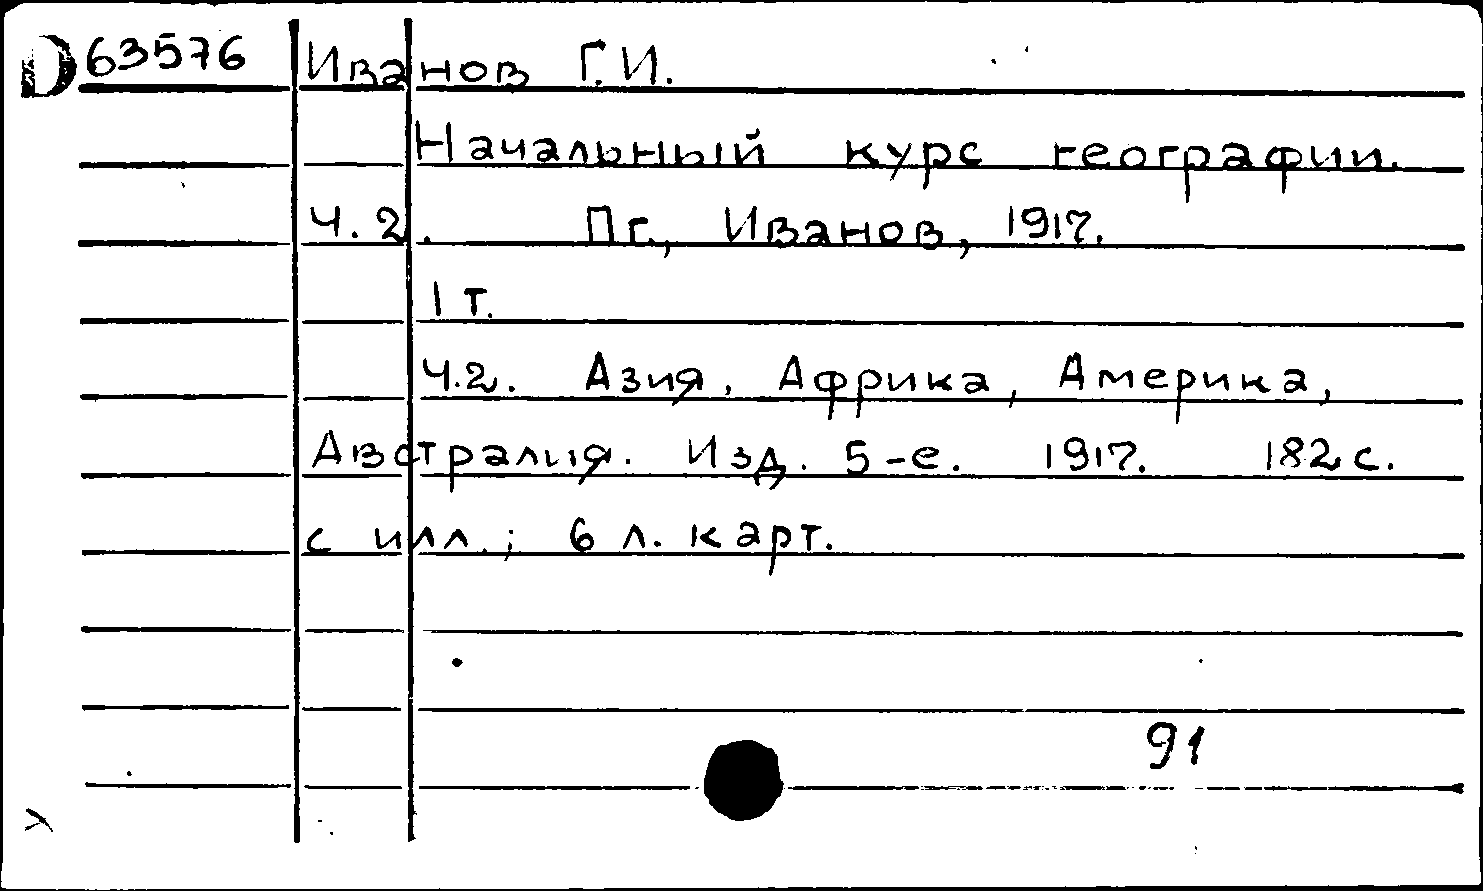 D 63576 Иванов Г.И.
Начальный курс географии.
Ч. 2. Пг., Иванов, 1917.
1 т.
Ч.2. Азия, Африка, Америка,
Австралия. Изд. 5-е. 1917. 182 с.
с илл.; 6 л. карт.
91